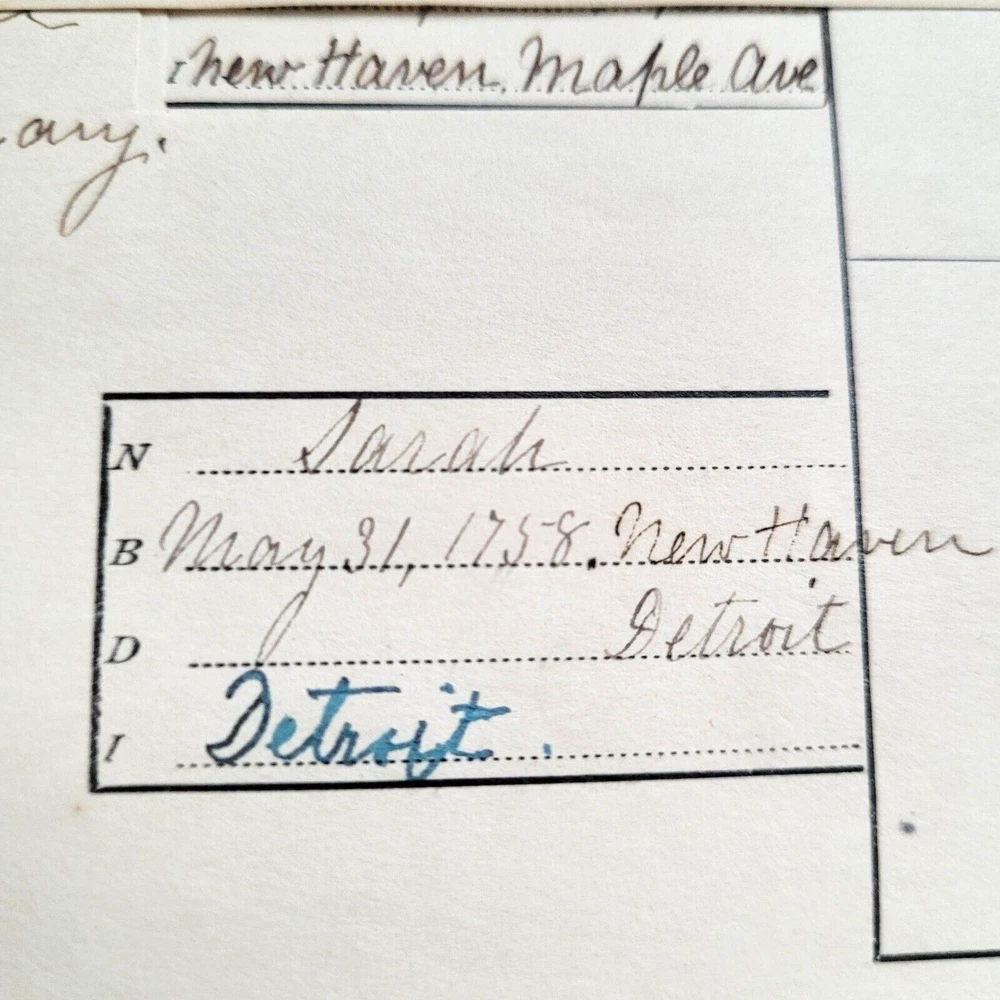 I New Haven, Maple Ave
ary.
N Sarah
B May 31, 1758. New Haven
D Detroit
I Detroit.